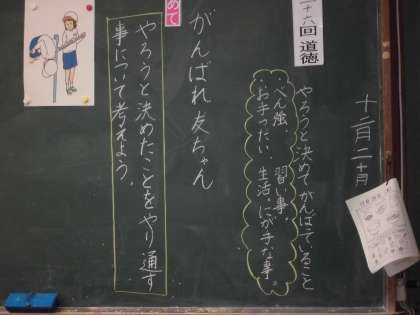 十二月二十日
二十六回 道徳
やろうと決めてがんばていること
べん強、習い事、
お手つだい、生活、にが手な事。
がんばれ友ちゃん
めて
やろうと決めたことをやり通す
事について考えよう。